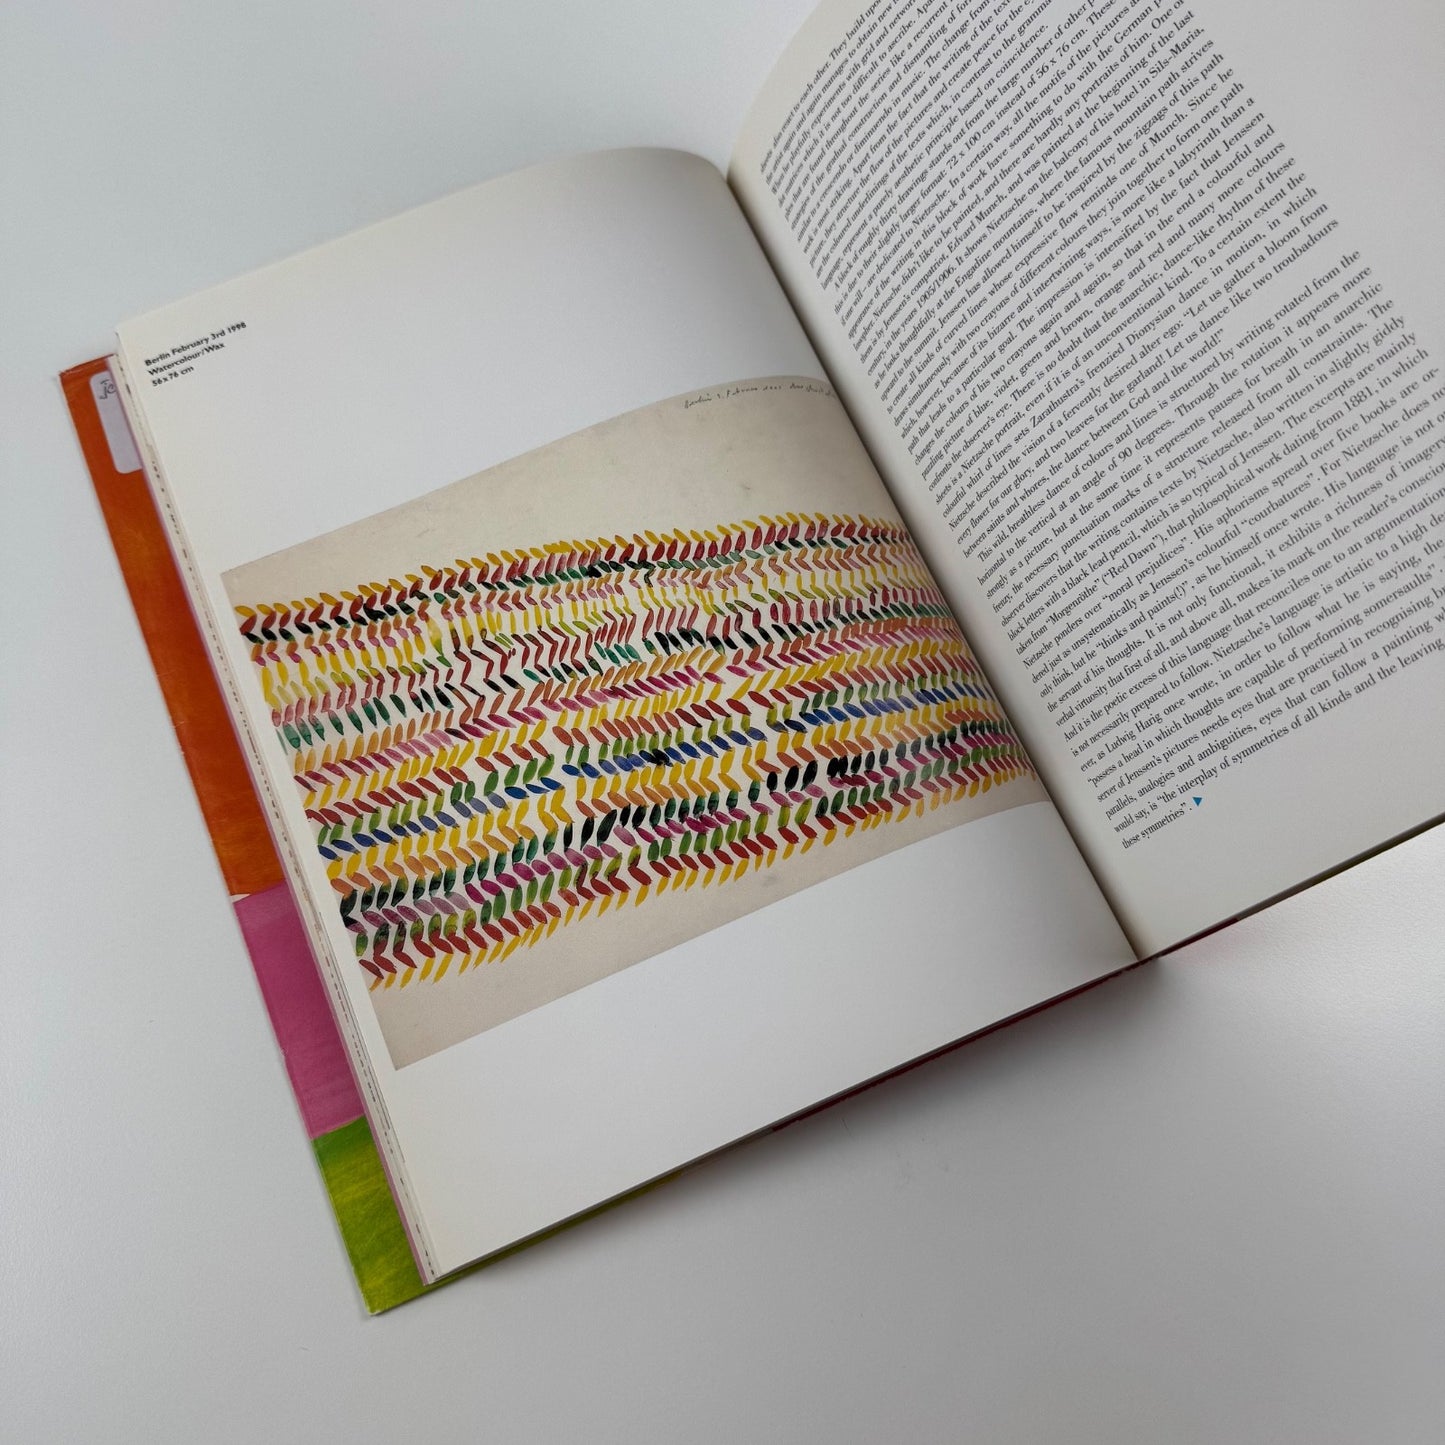 Berlin February 3rd 1998
Watercolour/Wax
56 x 76 cm
jc
other. They build upon
the artist again and again managed to obtain new
While he playfully experiments with grid and network
it is not too difficult to ascribe. Apart
that are found throughout the series like a recurrent
of the gradual construction and dismantling of
similar to a crescendo or diminuendo in music. The change from
work is most striking. Apart from the fact that the writing of the text
picture, they structure the flow of the pictures and create peace for the eye
or the coloured underlinings of the texts which, in contrast to the grammar
language represent a purely aesthetic principle based on coincidence.
A block of roughly thirty drawings stands out from the large number of other
this is due to their slightly larger format: 72 x 100 cm instead of 56 x 76 cm. These
of our will – are dedicated to Nietzsche. In a certain way, all the motifs of the pictures
appearance of the writing in this block of work have something to do with the German
sopher. Nietzsche didn't like to be painted, and there are hardly any portraits of him. One of
these is by Jenssen's compatriot, Edvard Munch, and was painted at the beginning of the last
century, in the years 1905/1906. It shows Nietzsche on the balcony of his hotel in Sils-Maria,
as he looks thoughtfully at the Engadine mountains, where the famous mountain path strives
upward to the summit. Jenssen has allowed himself to be inspired by the zigzags of this path
to create all kinds of curved lines whose expressive flow reminds one of Munch. Since he
draws simultaneously with two crayons of different colours they join together to form one path
which, however, because of its bizarre and intertwining ways, is more like a labyrinth than a
path that leads to a particular goal. The impression is intensified by the fact that Jenssen
changes the colours of his two crayons again and again, so that in the end a colourful and
puzzling picture of blue, violet, green and brown, orange and red and many more colours
confronts the observer's eye. There is no doubt that the anarchic, dance-like rhythm of these
sheets is a Nietzsche portrait, even if it is of an unconventional kind. To a certain extent the
colourful whirl of lines sets Zarathustra's frenzied Dionysian dance in motion: in which
Nietzsche described the vision of a fervently desired alter ego: “Let us gather a bloom from
every flower for our glory, and two leaves for the garland! Let us dance like two troubadours
between saints and whores, the dance between God and the world!”
This wild, breathless dance of colours and lines is structured by writing rotated from the
horizontal to the vertical at an angle of 90 degrees. Through the rotation it appears more
strongly as a picture, but at the same time it represents pauses for breath in an anarchic
frenzy, the necessary punctuation marks of a structure released from all constraints. The
observer discovers that the writing contains texts by Nietzsche, also written in slightly giddy
block letters with a black lead pencil, which is so typical of Jenssen. The excerpts are mainly
taken from “Morgenröthe” (“Red Dawn”), that philosophical work dating from 1881, in which
Nietzsche ponders over “moral prejudices”. His aphorisms spread over five books are or-
dered just as unsystematically as Jenssen's colourful “courbatures”. For Nietzsche does not
only think, but he “thinks and paints(!)”, as he himself once wrote. His language is not
servant of his thoughts. It is not only functional, it exhibits a richness of imagery
verbal virtuosity that first of all, and above all, makes its mark on the reader's
And it is the poetic excess of this language that reconciles one to an argumentation
is not necessarily prepared to follow. Nietzsche's language is artistic to a high
ever, as Ludwig Harig once wrote, in order to follow what he is saying, the
“possess a head in which thoughts are capable of performing somersaults”.
server of Jenssen's pictures needs eyes that are practised in recognising
parallels, analogies and ambiguities, eyes that can follow a painting
would say, is “the interplay of symmetries of all kinds and the leaving
these symmetries”.